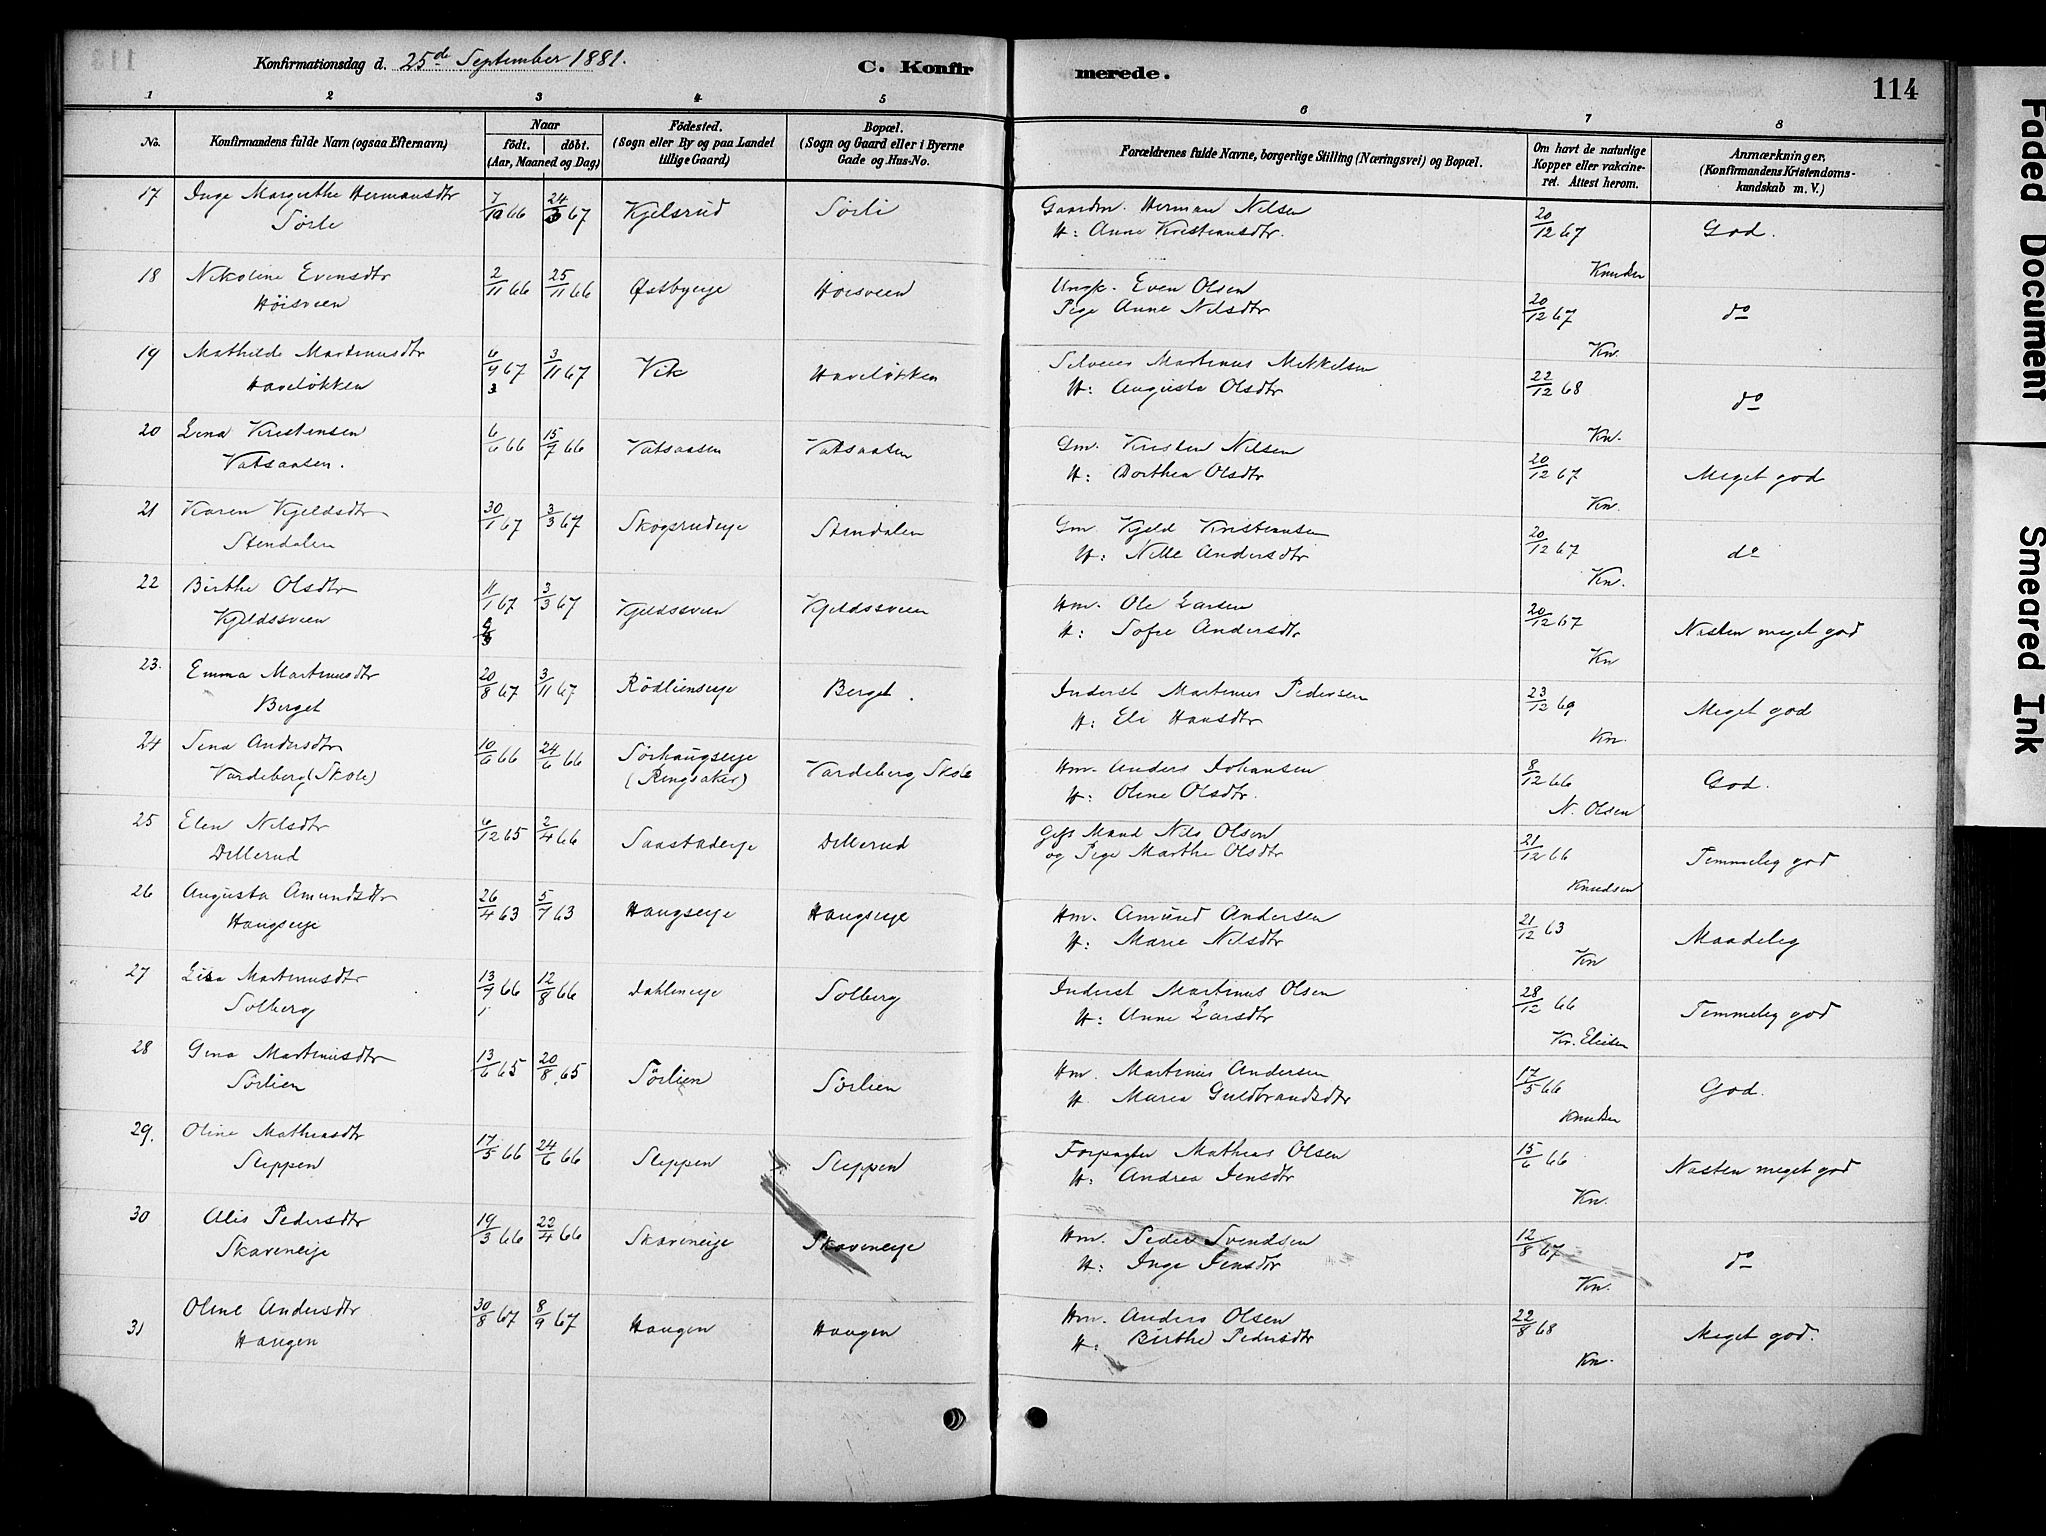 113
Konfirmationsdag d. 25de September 1881.
C. Konfirmerede.
114
1 2 3 4 5 6 7 8
No.
Konfirmandens fulde Navn (ogsaa Efternavn)
Naar
födt. döbt.
(Aar, Maaned og Dag)
Födested.
(Sogn eller By og paa Landet
tillige Gaard)
Bopæl.
(Sogn og Gaard eller i Byerne
Gade og Hus-No.
Forældrenes fulde Navne, borgerlige Stilling (Næringsvei) og Bopæl.
Om havt de naturlige
Kopper eller vakcine-
ret. Attest herom.
Anmærkninger,
(Konfirmandens Kristendoms-
kundskab m. V.)
17 Inge Margrethe Hermansdtr 7/10 66 24/3 67 Kjelsrud Sörli Gaardm. Herman Nilsen 20/12 67 God.
Sörli H: Anne Kristiansdtr. Knudsen
18 Nikoline Evensdtr 2/11 66 25/11 66 Østbyeie Höisveen Ungk. Even Olsen 20/12 67 do
Höisveen Pige Anne Nilsdtr Kn.
19 Mathilde Martinusdtr 6/9 67 3/11 67 Vik Haveløkken Selveier Martinus Mikkelsen 22/12 68 do
Haveløkken 3 H: Augusta Olsdtr Kn.
20 Lina Kristensen 6/6 66 15/7 66 Vatsaasen Vatsaasen Gm. Kristen Nilsen 20/12 67 Meget god
Vatsaasen. H: Dorthea Olsdtr Kn.
21 Karen Kjeldsdtr 30/1 67 3/3 67 Skogsrudeie Stendalen Gm. Kjeld Kristiansen 20/12 67 do
Stendalen H: Nille Andersdtr Kn.
22 Birthe Olsdtr 11/1 67 3/3 67 Kjeldssveen Kjeldssveen Hm. Ole Larsen 20/12 67 Næsten meget god
Kjeldssveen H: Sofie Andersdtr Kn
23. Emma Martinusdtr 20/8 67 3/11 67 Rödlienseie Berget. Inderst Martinus Pedersen 23/12 69 Meget god
Berget H: Eli Hansdtr Kn.
24 Sina Andersdtr 10/6 66 24/6 66 Sörhaugseie Vardeberg Skole Hm. Anders Johansen 8/12 66 God.
Vardeberg (Skole) (Ringsaker) H: Oline Olsdtr. N. Olsen
25 Elen Nilsdtr 6/12 65 2/4 66 Saastadeie Dillerud Gift Mand Nils Olsen 21/12 66 Temmelig god
Dillerud og Pige Marthe Olsdtr Knudsen
26 Augusta Amundsdtr 26/4 63 5/7 63 Haugseie Haugseie Hm. Amund Andersen 21/12 63 Maadelig
Haugseie H: Marie Nilsdtr Kn
27 Lisa Martinusdtr 13/7 66 12/8 66 Dahlineie Solberg Inderst Martinus Olsen 28/12 66 Temmelig god
Solberg H: Anne Larsdtr Kr. Eliesen
28 Gina Martinusdtr 13/6 65 20/8 65 Sörlien Sörlien Hm. Martinus Andersen 17/5 66 God.
Sörlien H. Maria Guldbrandsdtr Knudsen
29. Oline Mathiasdtr 17/5 66 24/6 66 Sleppen Sleppen Forpagter Mathias Olsen 15/6 66 Næsten meget god
Sleppen H: Andrea Jensdtr Kn.
30 Alis Pedersdtr 19/3 66 22/4 66 Skaveneie Skaveneie Hm. Peder Svendsen 12/8 67 do
Skaveneie H: Inge Jensdtr Kn.
31 Oline Andersdtr 30/8 67 8/9 67 Haugen Haugen Hm. Anders Olsen 22/8 68 Meget god.
Haugen H: Birthe Pedersdtr Kn.
Faded Document
Smeared Ink